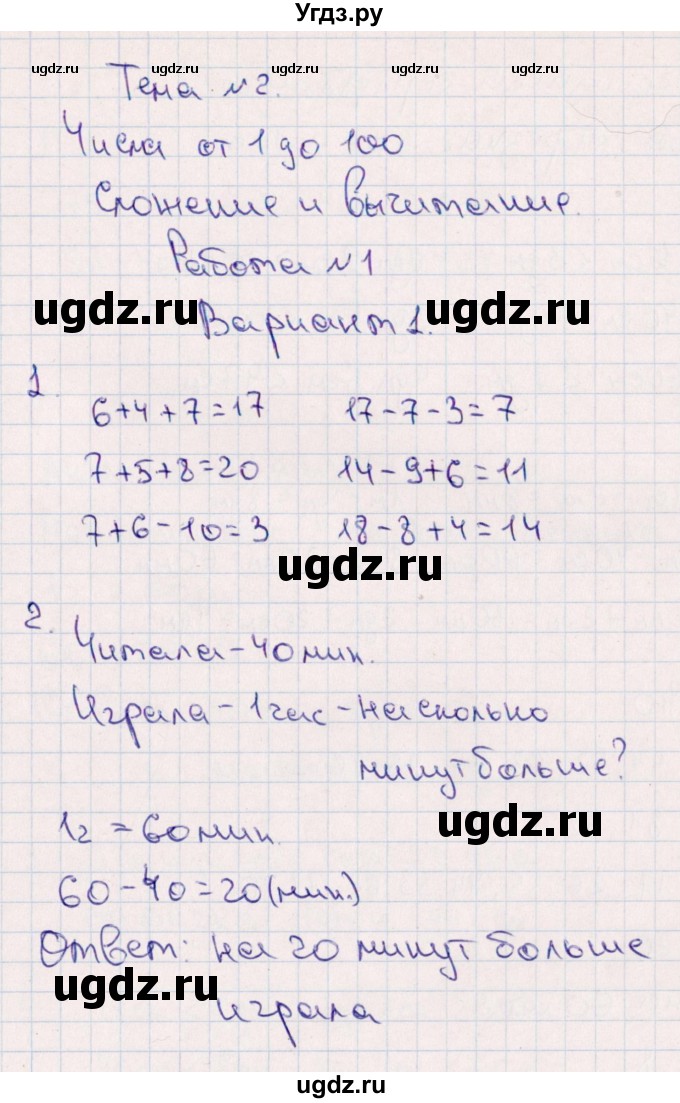 Угдз.ру
ugdz.ru ugdz.ru ugdz.ru ugdz.ru ugdz.ru
Тема №2.
Числа от 1 до 100
Сложение и вычитание.
Работа №1
ugdz.ru Вариант 1. ugdz.ru
1.
6+4+7=17 17-7-3=7
7+5+8=20 14-9+6=11
7+6-10=3 18-8+4=14
ugdz.ru
2.
Читала - 40 мин.
Играла - 1 час - на сколько
минут больше?
ugdz.ru
1ч = 60 мин.
60-40=20(мин.)
Ответ: на 20 минут больше
ugdz.ru
играла
ugdz.ru